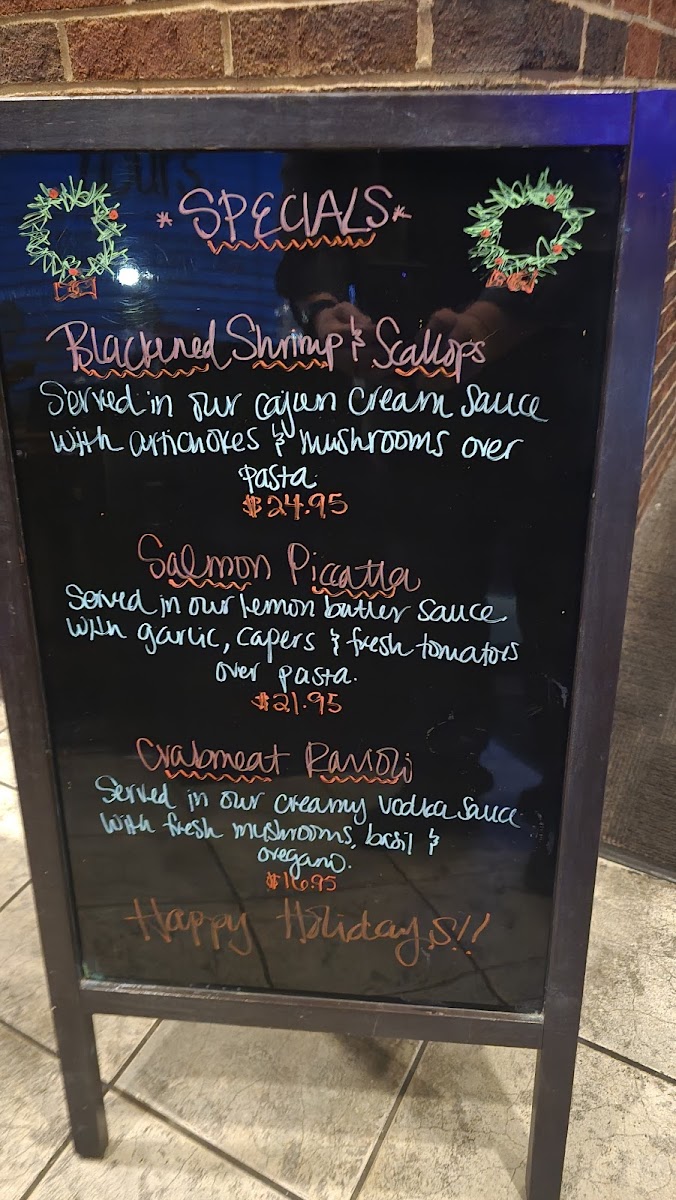 *SPECIALS*
Blackened Shrimp & Scallops
Served in our cajun cream sauce
with artichokes & mushrooms over
pasta.
$24.95
Salmon Piccatta
Served in our lemon butter sauce
with garlic, capers & fresh tomatoes
over pasta.
$21.95
Crabmeat Ravioli
Served in our creamy vodka sauce
with fresh mushrooms, basil &
oregano.
$16.95
Happy Holidays!!